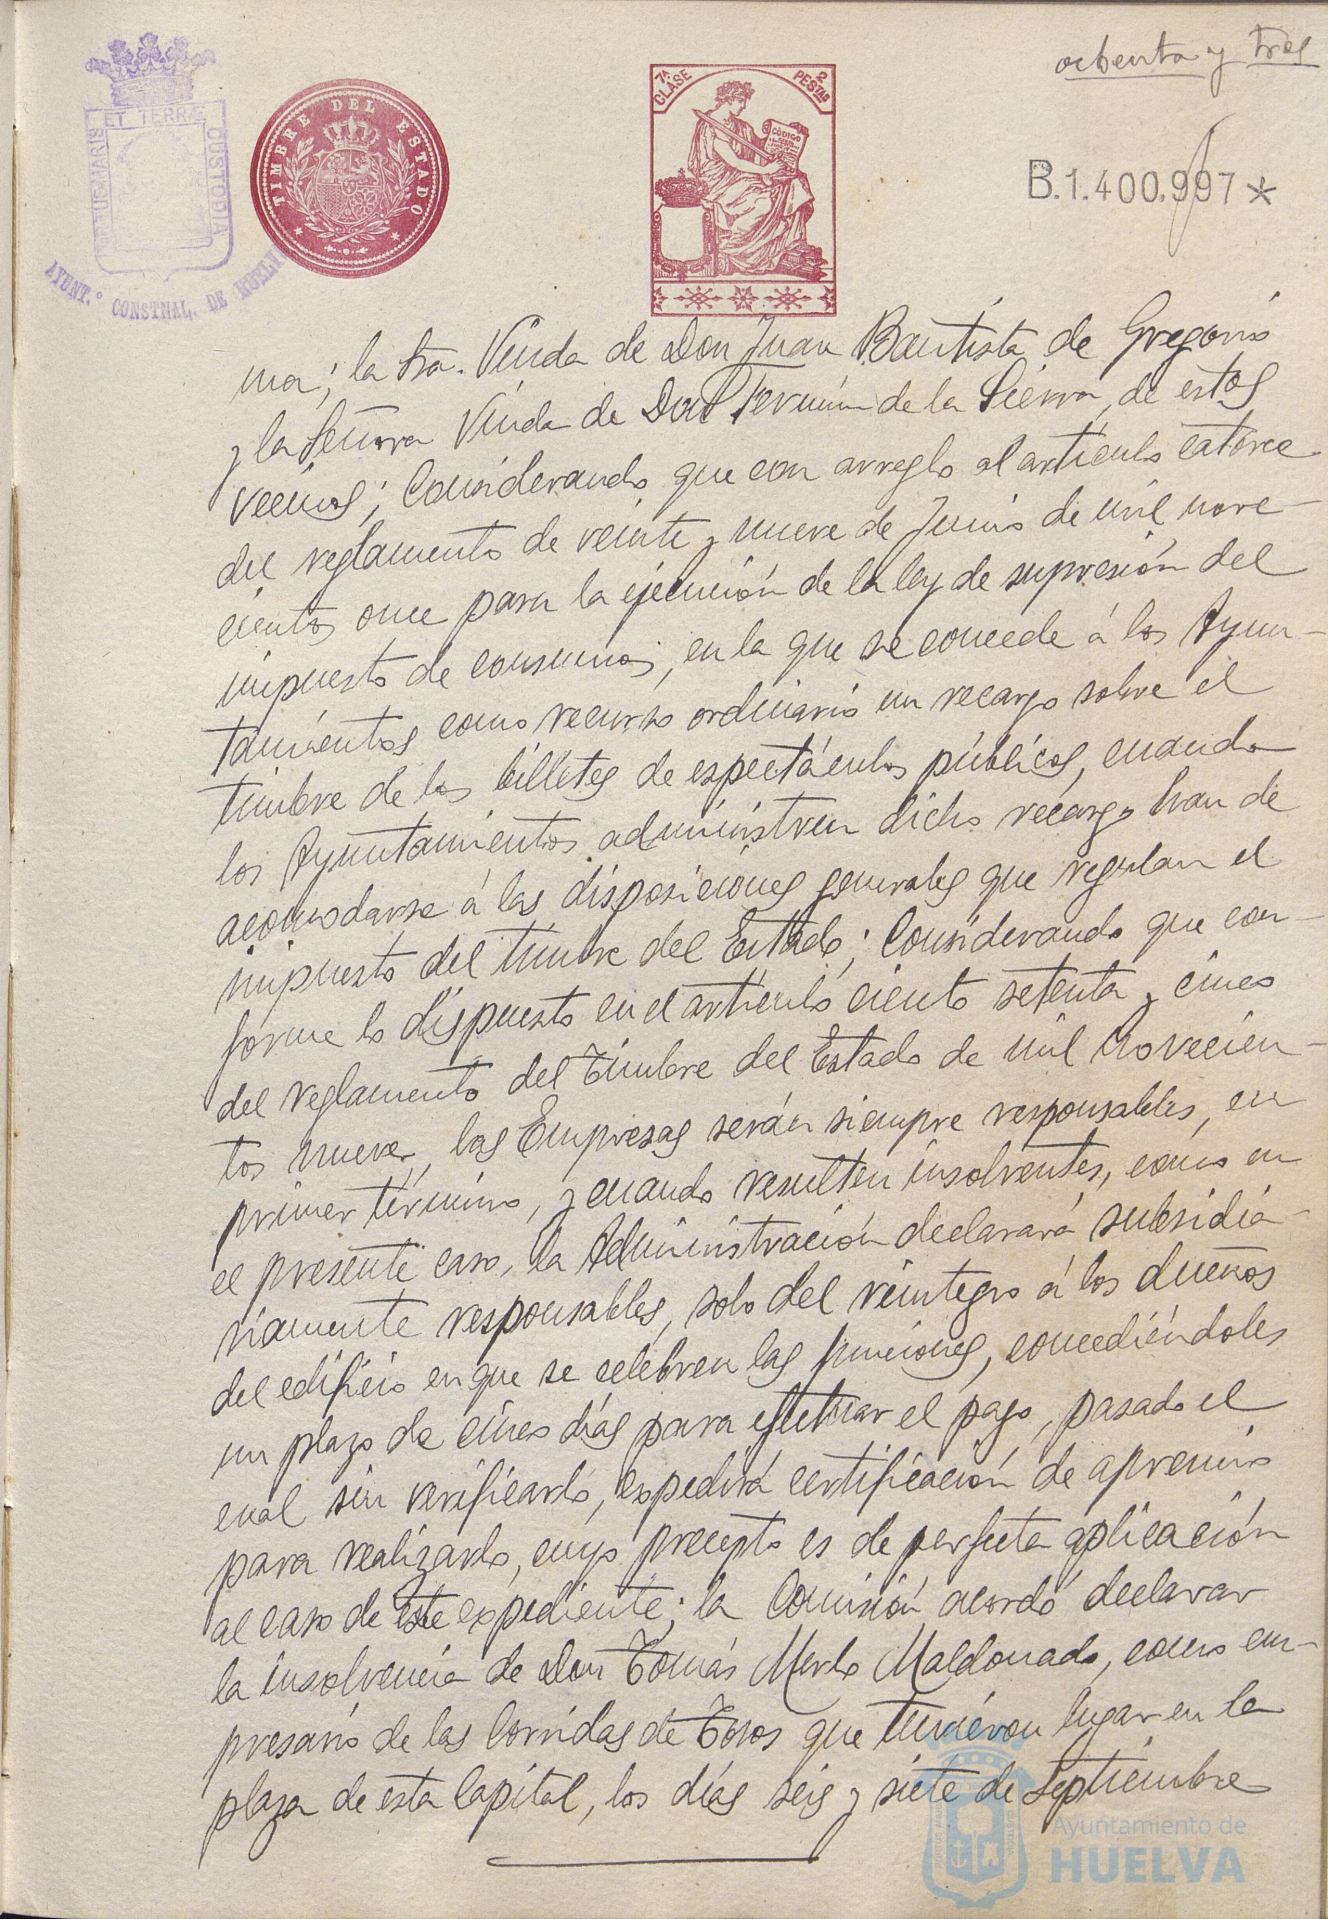 ochenta y tres
PORTUS MARIS ET TERRÆ CUSTODIA
AYUNT.º CONSTNAL. DE HUELVA
TIMBRE DEL ESTADO
7ª CLASE
2 PESTAS
CÓDIGO
B.1.400.997*
ma; la Sra. Viuda de Don Juan Bautista de Gregorio
y la Señora Viuda de Don Fermín de la Sierra, de estos
vecinos; Considerando que con arreglo al artículo catorce
del reglamento de veinte y nueve de Junio de mil nove-
cientos once para la ejecución de la ley de supresión del
impuesto de consumos, en la que se concede á los Ayun-
tamientos como recurso ordinario un recargo sobre el
timbre de los billetes de espectáculos públicos, cuando
los Ayuntamientos administren dicho recargo han de
acomodarse á las disposiciones generales que regulan el
impuesto del timbre del Estado; Considerando que con-
forme lo dispuesto en el artículo ciento setenta y cinco
del reglamento del Timbre del Estado de mil novecien-
tos nueve, las Empresas serán siempre responsables, en
primer término, y cuando resulten insolventes, como en
el presente caso, la Administración declarará subsidia-
riamente responsables, solo del reintegro á los dueños
del edificio en que se celebren las funciones, concediéndoles
un plazo de cinco días para efectuar el pago, pasado el
cual sin verificarlo, expedirá certificación de apremio
para realizarlo, cuyo precepto es de perfecta aplicación
al caso de este expediente; la Comisión acordó declarar
la insolvencia de Don Tomás Merlo Maldonado, como em-
presario de las Corridas de Toros que tuvieron lugar en la
plaza de esta Capital, los días seis y siete de Septiembre
Ayuntamiento de
HUELVA